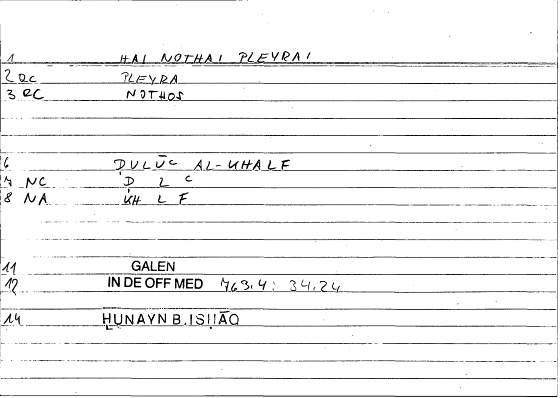 1 HAI NOTHAI PLEYRAI
2 RC PLEYRA
3 RC NOTHOS
6 ḌULŪC AL-KHALF
7 NC Ḍ L C
8 NA KH L F
11 GALEN
12 IN DE OFF MED 763.4: 34.24
14 ḤUNAYN B. ISḤĀQ